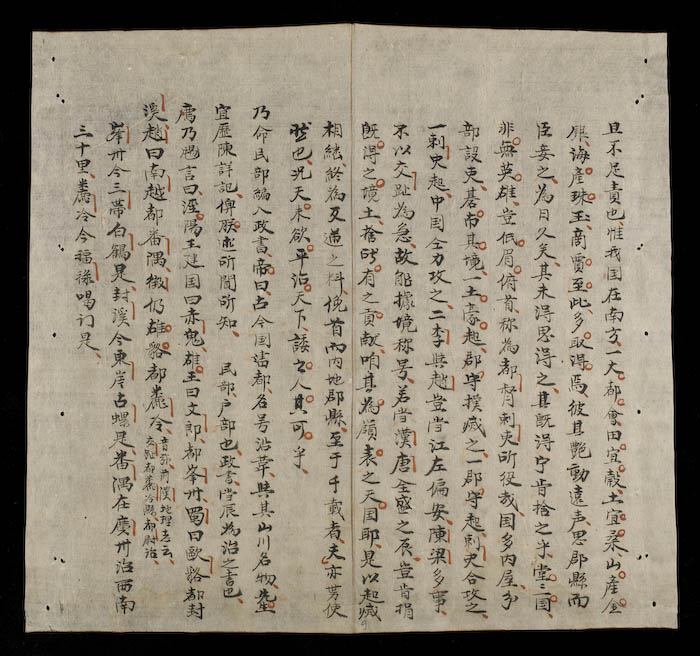 且不足責也惟我国在南方一大都會田宜穀土宜桑山産金
銀海産珠玉商賈至此多取得焉彼其艷動遠声思郡縣而
臣妾之為日久矣其未得思得之其既得宁肯捨之乎堂二国
非無英雄豈低眉俯首称為都督刺史所役哉国多内屋多
部設吏碁布其境一土豪起郡守撲滅之一郡守起刺史合攻之
一刺史起中国全力攻之二李與趙豈當江左偏安陳梁多事
不以交趾為急故能據境称号若當漢唐全盛之辰豈肯捐
既得之境土捨所有之貢献咱其為嶺表之天国耶是以起滅
相継終為反過之科俛首而内地郡縣至于千載者夫亦势使
然也况天未欲平治天下諉之人其可乎
乃命民部編入政書帝曰古今国啚都名号沿革與其山川名物先生
宜歷陳詳記俾朕也所聞所知 民部户部也政書當辰為治之書也
鴈乃颺言曰涇陽王建国曰赤鬼雄王曰文郎都峯州蜀曰歐貉都封
溪趙曰南越都番隅徵仍雄貉都麊冷音弥前漢地理志云交趾都麊冷縣都尉治
峯州今三帯白鶴是封溪今東岸古螺是番隅在廣州治西南
三十里麊冷今福禄喝门是